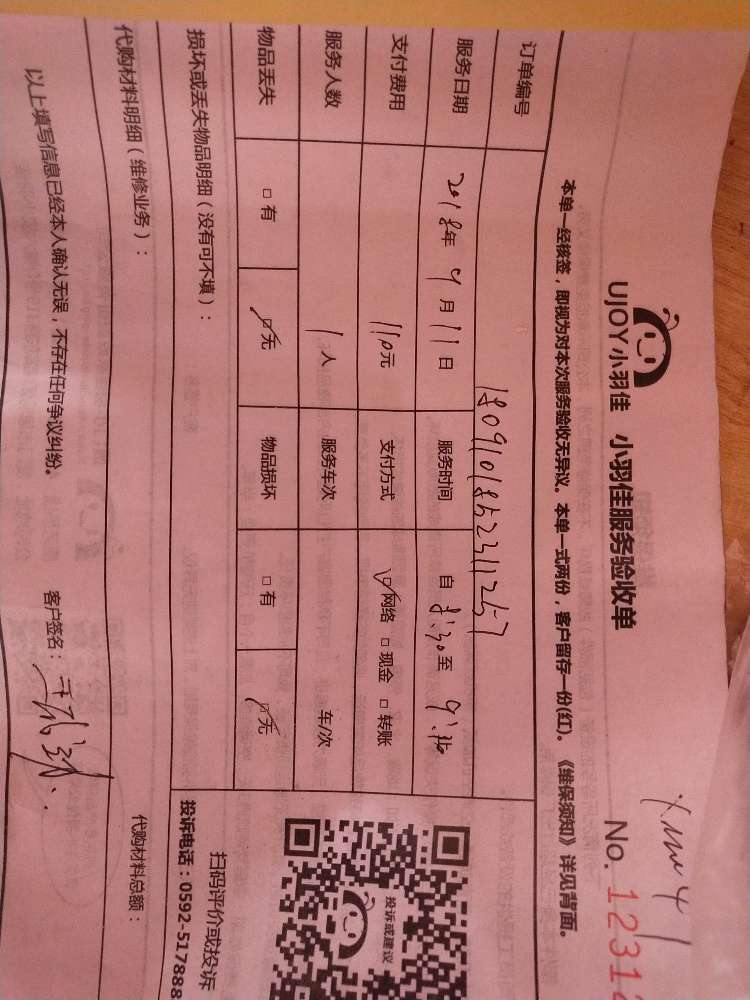 UJOY小羽佳 小羽佳服务验收单
No. 1231
本单一经核签，即视为对本次服务验收无异议。本单一式两份，客户留存一份(红)。《维保须知》详见背面。
订单编号
服务日期 2018年9月11日 服务时间 自 8:30 至
支付费用 110元 支付方式 ☑网络 □现金 □转账
服务人数 1人 服务车次 车/次
物品丢失 □有 ☑无 物品损坏 □有 ☑无
损坏或丢失物品明细（没有可不填）：
投诉或建议
扫码评价或投诉
投诉电话：0592-517888
代购材料明细（维修业务）： 代购材料总额：
以上填写信息已经本人确认无误，不存在任何争议纠纷。 客户签名：